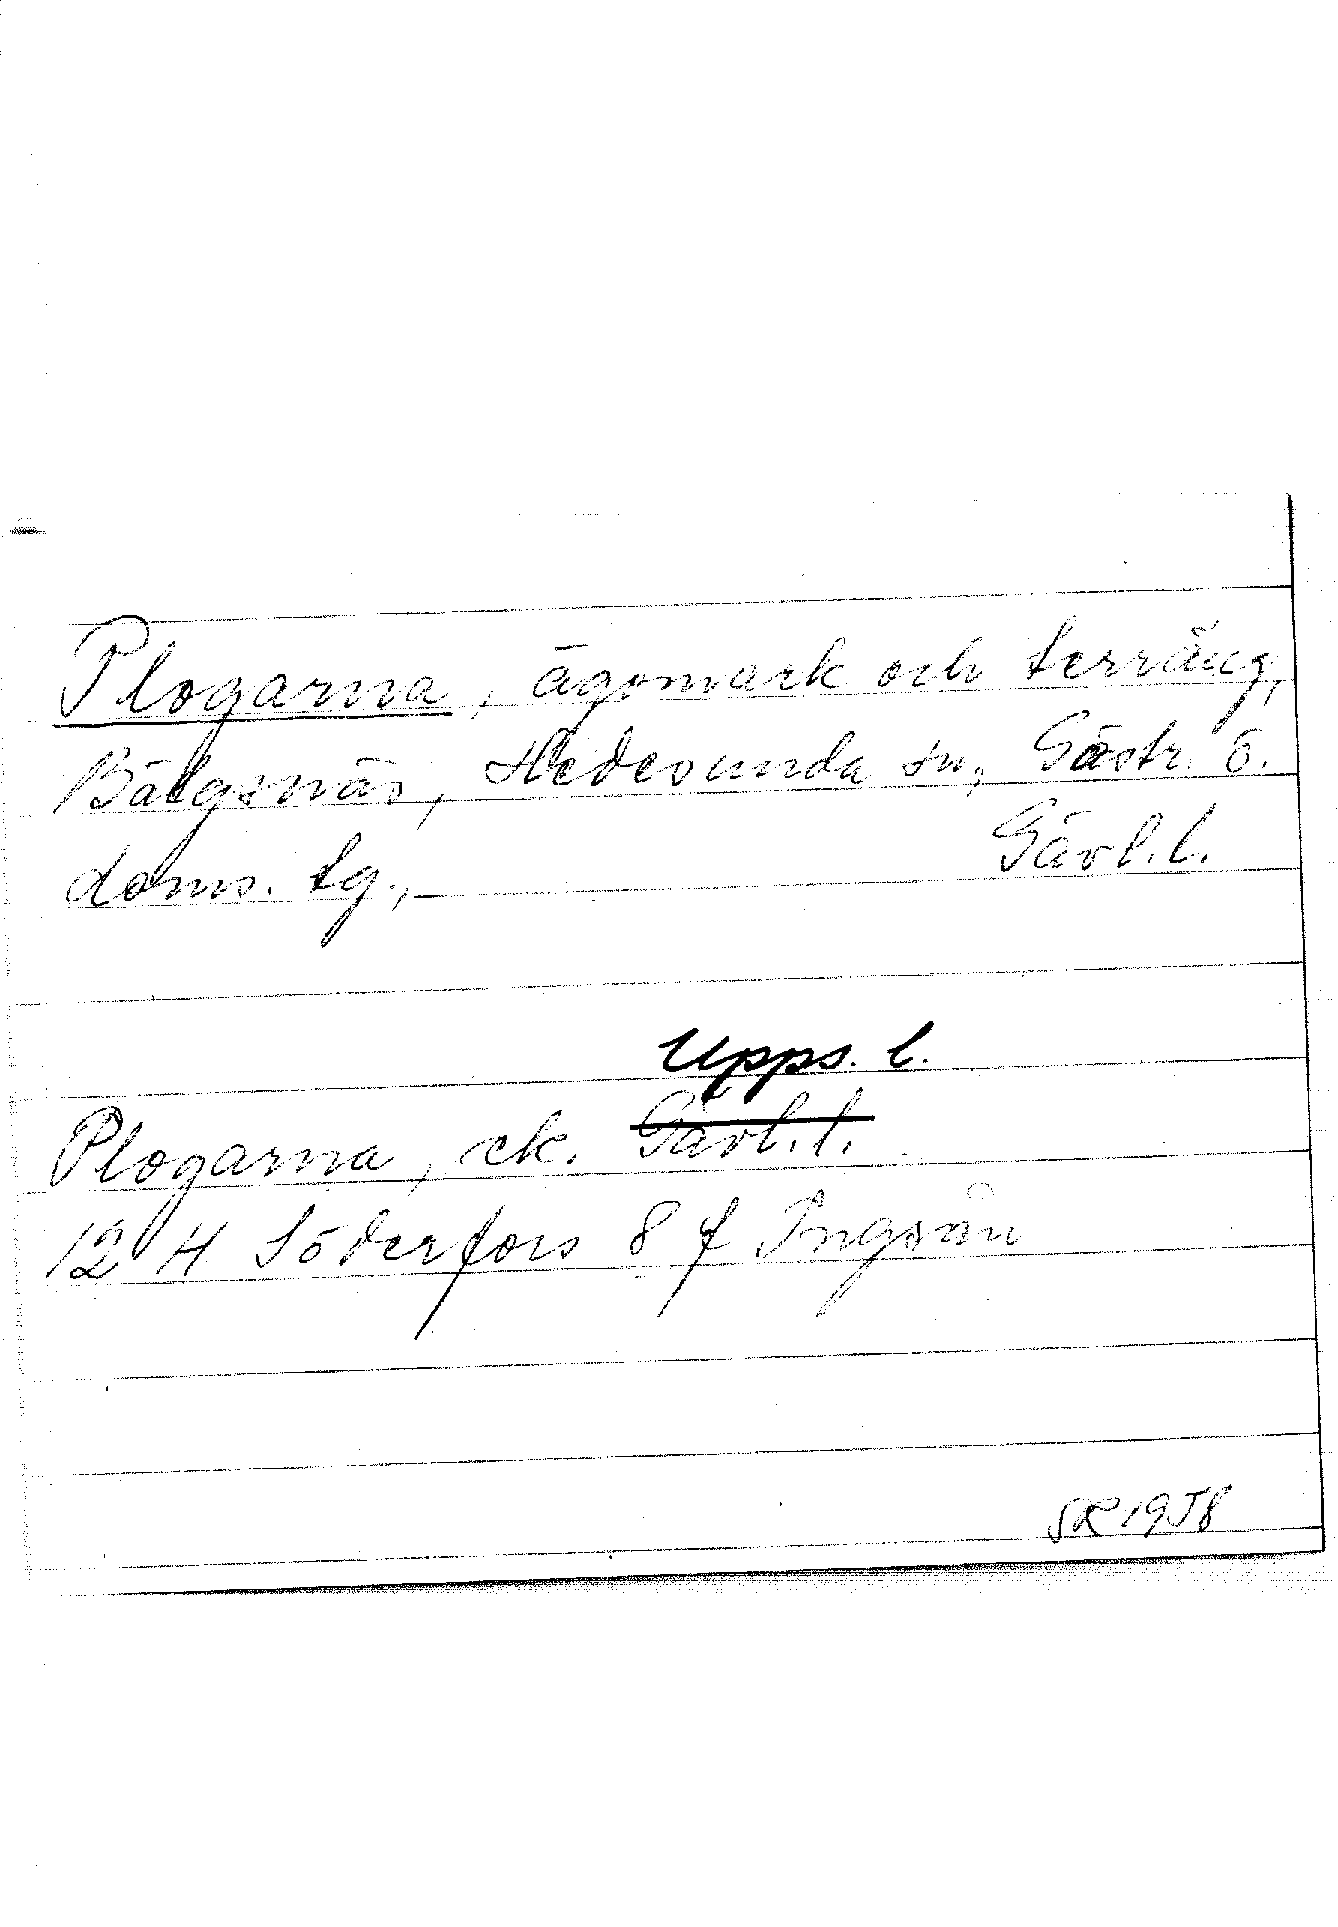 Plogarna, ägomark och terräng,
Bälgsnäs, Hedesunda sn, Gästr. ö.
doms. tg., Gävl. l.
Upps. l.
Plogarna, ek. Gävl. l.
12 H Söderfors 8 f Ingsån
SR 1958